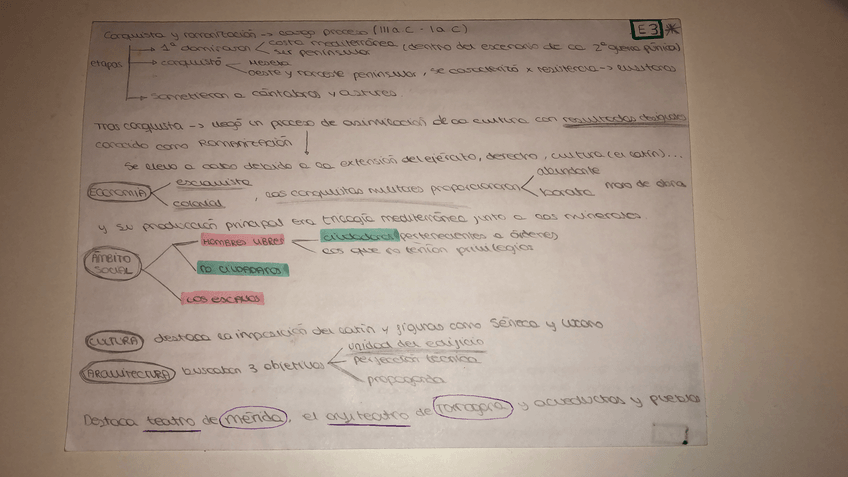 Conquista y romanización → largo proceso (III a C - I a C) E3 *
1º dominaron costa mediterránea (dentro del escenario de la 2º guerra púnica)
sur peninsular
etapas conquistó Meseta
oeste y noroeste peninsular, se caracterizó x resistencia → lusitanos
sometieron a cántabros y astures
Tras conquista → llegó un proceso de asimilación de la cultura con resultados desiguales
conocido como ROMANIZACIÓN
Se llevo a cabo debido a la extensión del ejército, derecho, cultura (el latín)...
ECONOMIA esclavista
colonial , las conquistas militares proporcionaron abundante
barata mano de obra
y su producción principal era trilogía mediterránea junto a los minerales.
ÁMBITO SOCIAL HOMBRES LIBRES ciudadanos pertenecientes a órdenes
los que no tenían privilegios
NO CIUDADANOS
LOS ESCLAVOS
CULTURA destaca la imposición del latín y figuras como Séneca y
ARQUITECTURA buscaban 3 objetivos unidad del edificio
perfección técnica
propaganda
Destaca teatro de Mérida, el anfiteatro de Tarragona y acueductos y